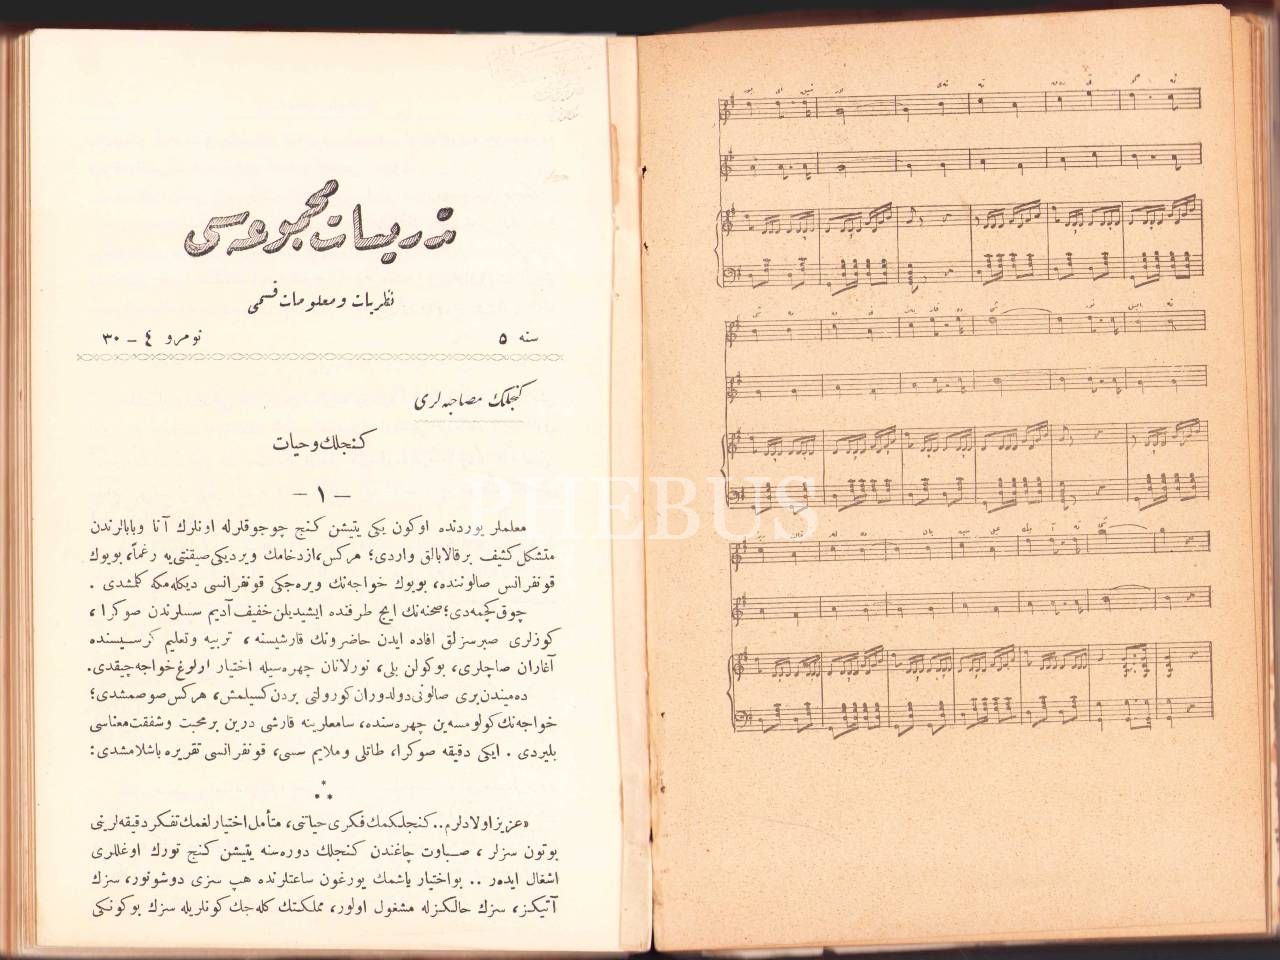 تدریسات مجموعه‌سی
نظریات و معلومات قسمی
سنه ٥ نومرو ٤ – ٣٠
كنجلك مصاحبه‌لری
كنجلك و حیات
– ١ –
معلملر یوردنده او كون یكی یتیشن كنج چوجوقلرله اونلرك آنا و بابالرندن
متشكل كثیف بر قالابالق واردی؛ هركس، ازدحامك ویردیكی صیقنتی‌یه رغماً، بویوك
قونفرانس صالوننده، بویوك خواجه‌نك ویره‌جكی قونفرانسی دیكله‌مكه كلمشدی .
چوق كچمه‌دی؛ صحنه‌نك ایچ طرفنده ایشیدیلن خفیف آدیم سسلرندن صوكرا ،
كوزلری صبرسزلق افاده ایدن حاضرونك قارشیسنه ، تربیه و تعلیم كرسیسنده
آغاران صاچلری، بوكولن بلی، نورلانان چهره‌سیله اختیار اولوغ خواجه چیقدی.
ده‌میندن بری صالونی دولدوران كورولتی بردن كسیلمش، هركس صوصمشدی؛
خواجه‌نك كولومسه‌ین چهره‌سنده، سامعلرینه قارشی درین بر محبت و شفقت معناسی
بلیردی . ایكی دقیقه صوكرا، طاتلی و ملایم سسی، قونفرانسی تقریره باشلامشدی:
⁂
«عزیز اولادلرم.. كنجلكمك فكری حیاتنی، متأمل اختیارلغمك تفكر دقیقه‌لرینی
بوتون سزلر ، صباوت چاغندن كنجلك دوره‌سنه یتیشن كنج تورك اوغللری
اشغال ایده‌ر .. بو اختیار یاشمك یورغون ساعتلرنده هپ سزی دوشونور، سزك
آتیكز، سزك حالكزله مشغول اولور، مملكتك كله‌جك كونلریله سزك بوكونكی
PHEBUS